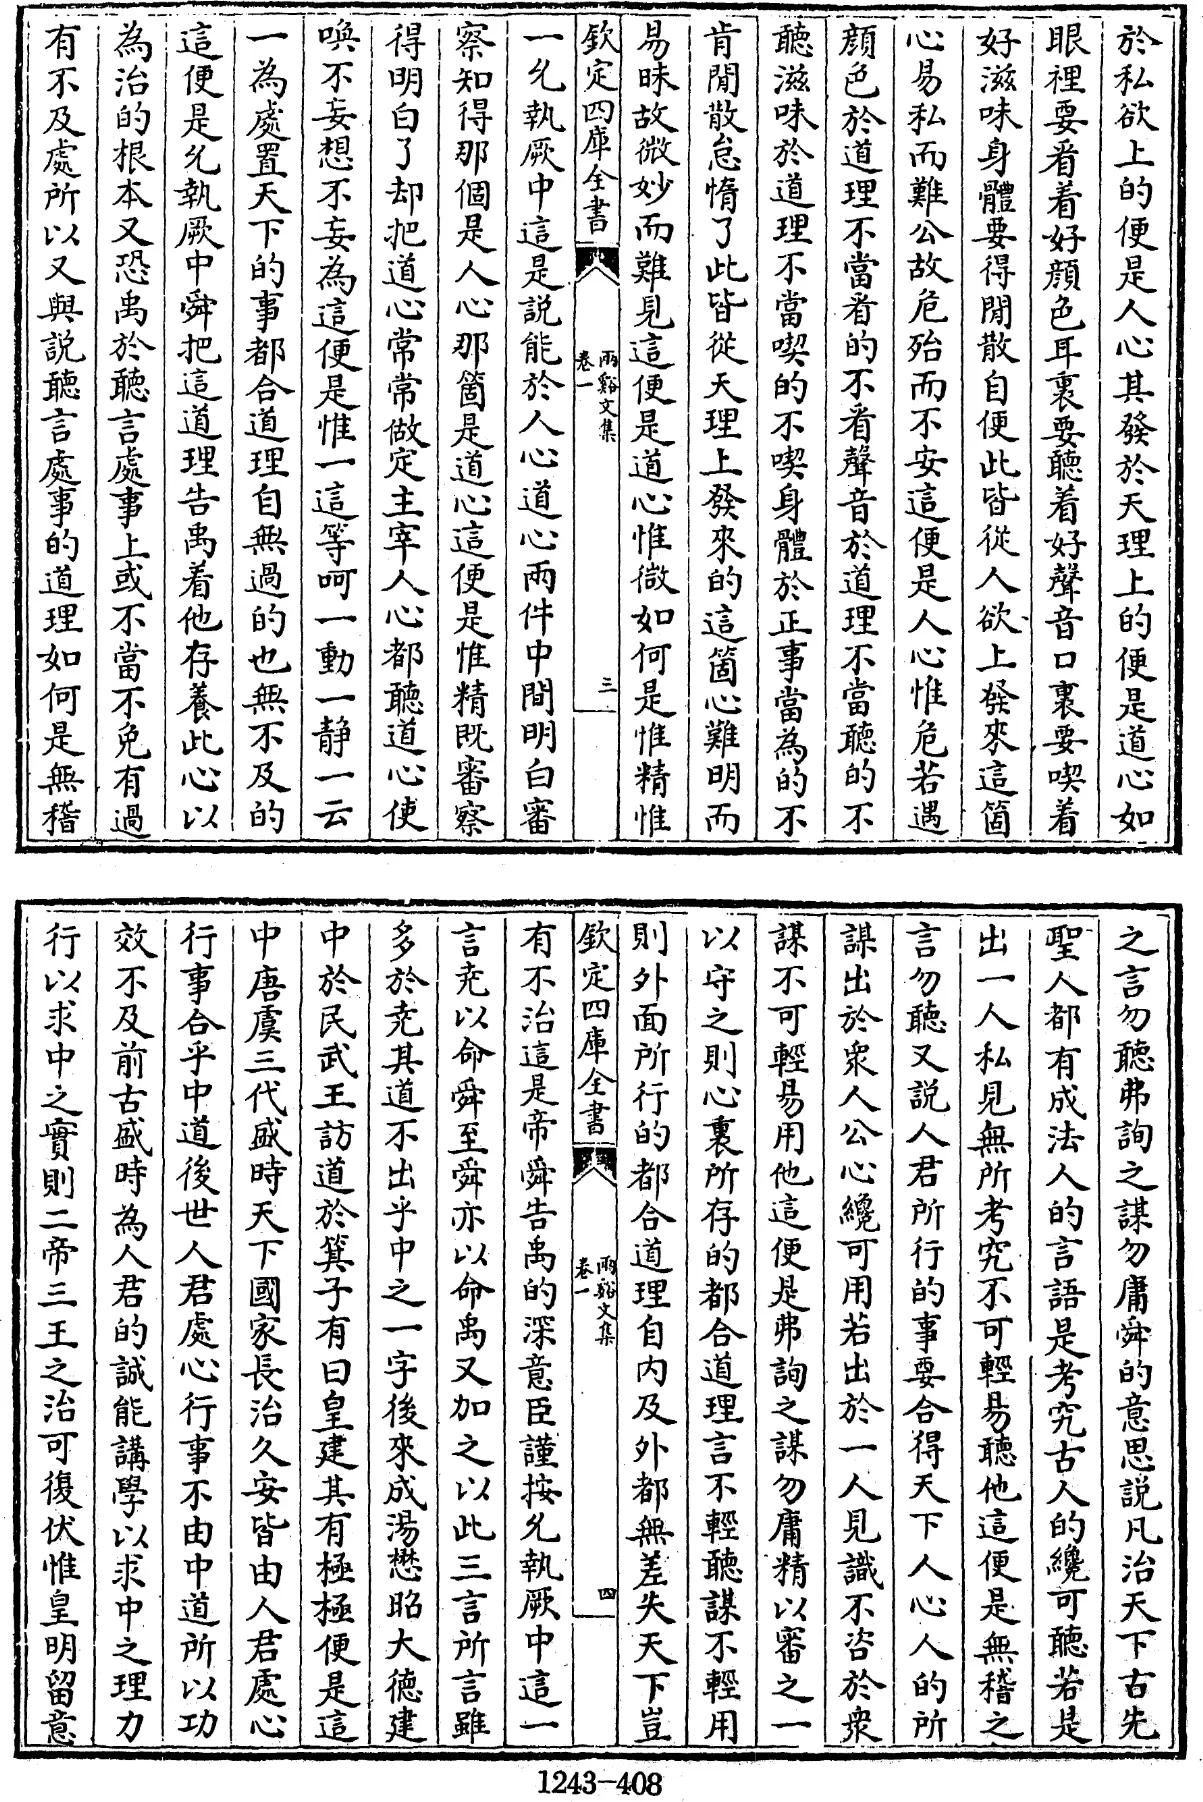 於私欲上的便是人心其發於天理上的便是道心如
眼裡要看着好顔色耳裏要聽着好聲音口裏要喫着
好滋味身體要得閒散自便此皆從人欲上發來這箇
心易私而難公故危殆而不安這便是人心惟危若遇
顔色於道理不當看的不看聲音於道理不當聽的不
聽滋味於道理不當喫的不喫身體於正事當為的不
肯閒散怠惰了此皆從天理上發來的這箇心難明而
易昧故微妙而難見這便是道心惟微如何是惟精惟
欽定四庫全書
兩谿文集
卷一
三
一允執厥中這是説能於人心道心兩件中間明白審
察知得那個是人心那箇是道心這便是惟精既審察
得明白了却把道心常常做定主宰人心都聽道心使
喚不妄想不妄為這便是惟一這等呵一動一靜一云
一為處置天下的事都合道理自無過的也無不及的
這便是允執厥中舜把這道理告禹着他存養此心以
為治的根本又恐禹於聽言處事上或不當不免有過
有不及處所以又與説聽言處事的道理如何是無稽
之言勿聽弗詢之謀勿庸舜的意思説凡治天下古先
聖人都有成法人的言語是考究古人的纔可聽若是
出一人私見無所考究不可輕易聽他這便是無稽之
言勿聽又説人君所行的事要合得天下人心人的所
謀出於衆人公心纔可用若出於一人見識不咨於衆
謀不可輕易用他這便是弗詢之謀勿庸精以審之一
以守之則心裏所存的都合道理言不輕聽謀不輕用
則外面所行的都合道理自内及外都無差失天下豈
欽定四庫全書
兩谿文集
卷一
四
有不治這是帝舜告禹的深意臣謹按允執厥中這一
言堯以命舜至舜亦以命禹又加之以此三言所言雖
多於堯其道不出乎中之一字後來成湯懋昭大德建
中於民武王訪道於箕子有曰皇建其有極極便是這
中唐虞三代盛時天下國家長治久安皆由人君處心
行事合乎中道後世人君處心行事不由中道所以功
效不及前古盛時為人君的誠能講學以求中之理力
行以求中之實則二帝三王之治可復伏惟皇明留意
1243-408